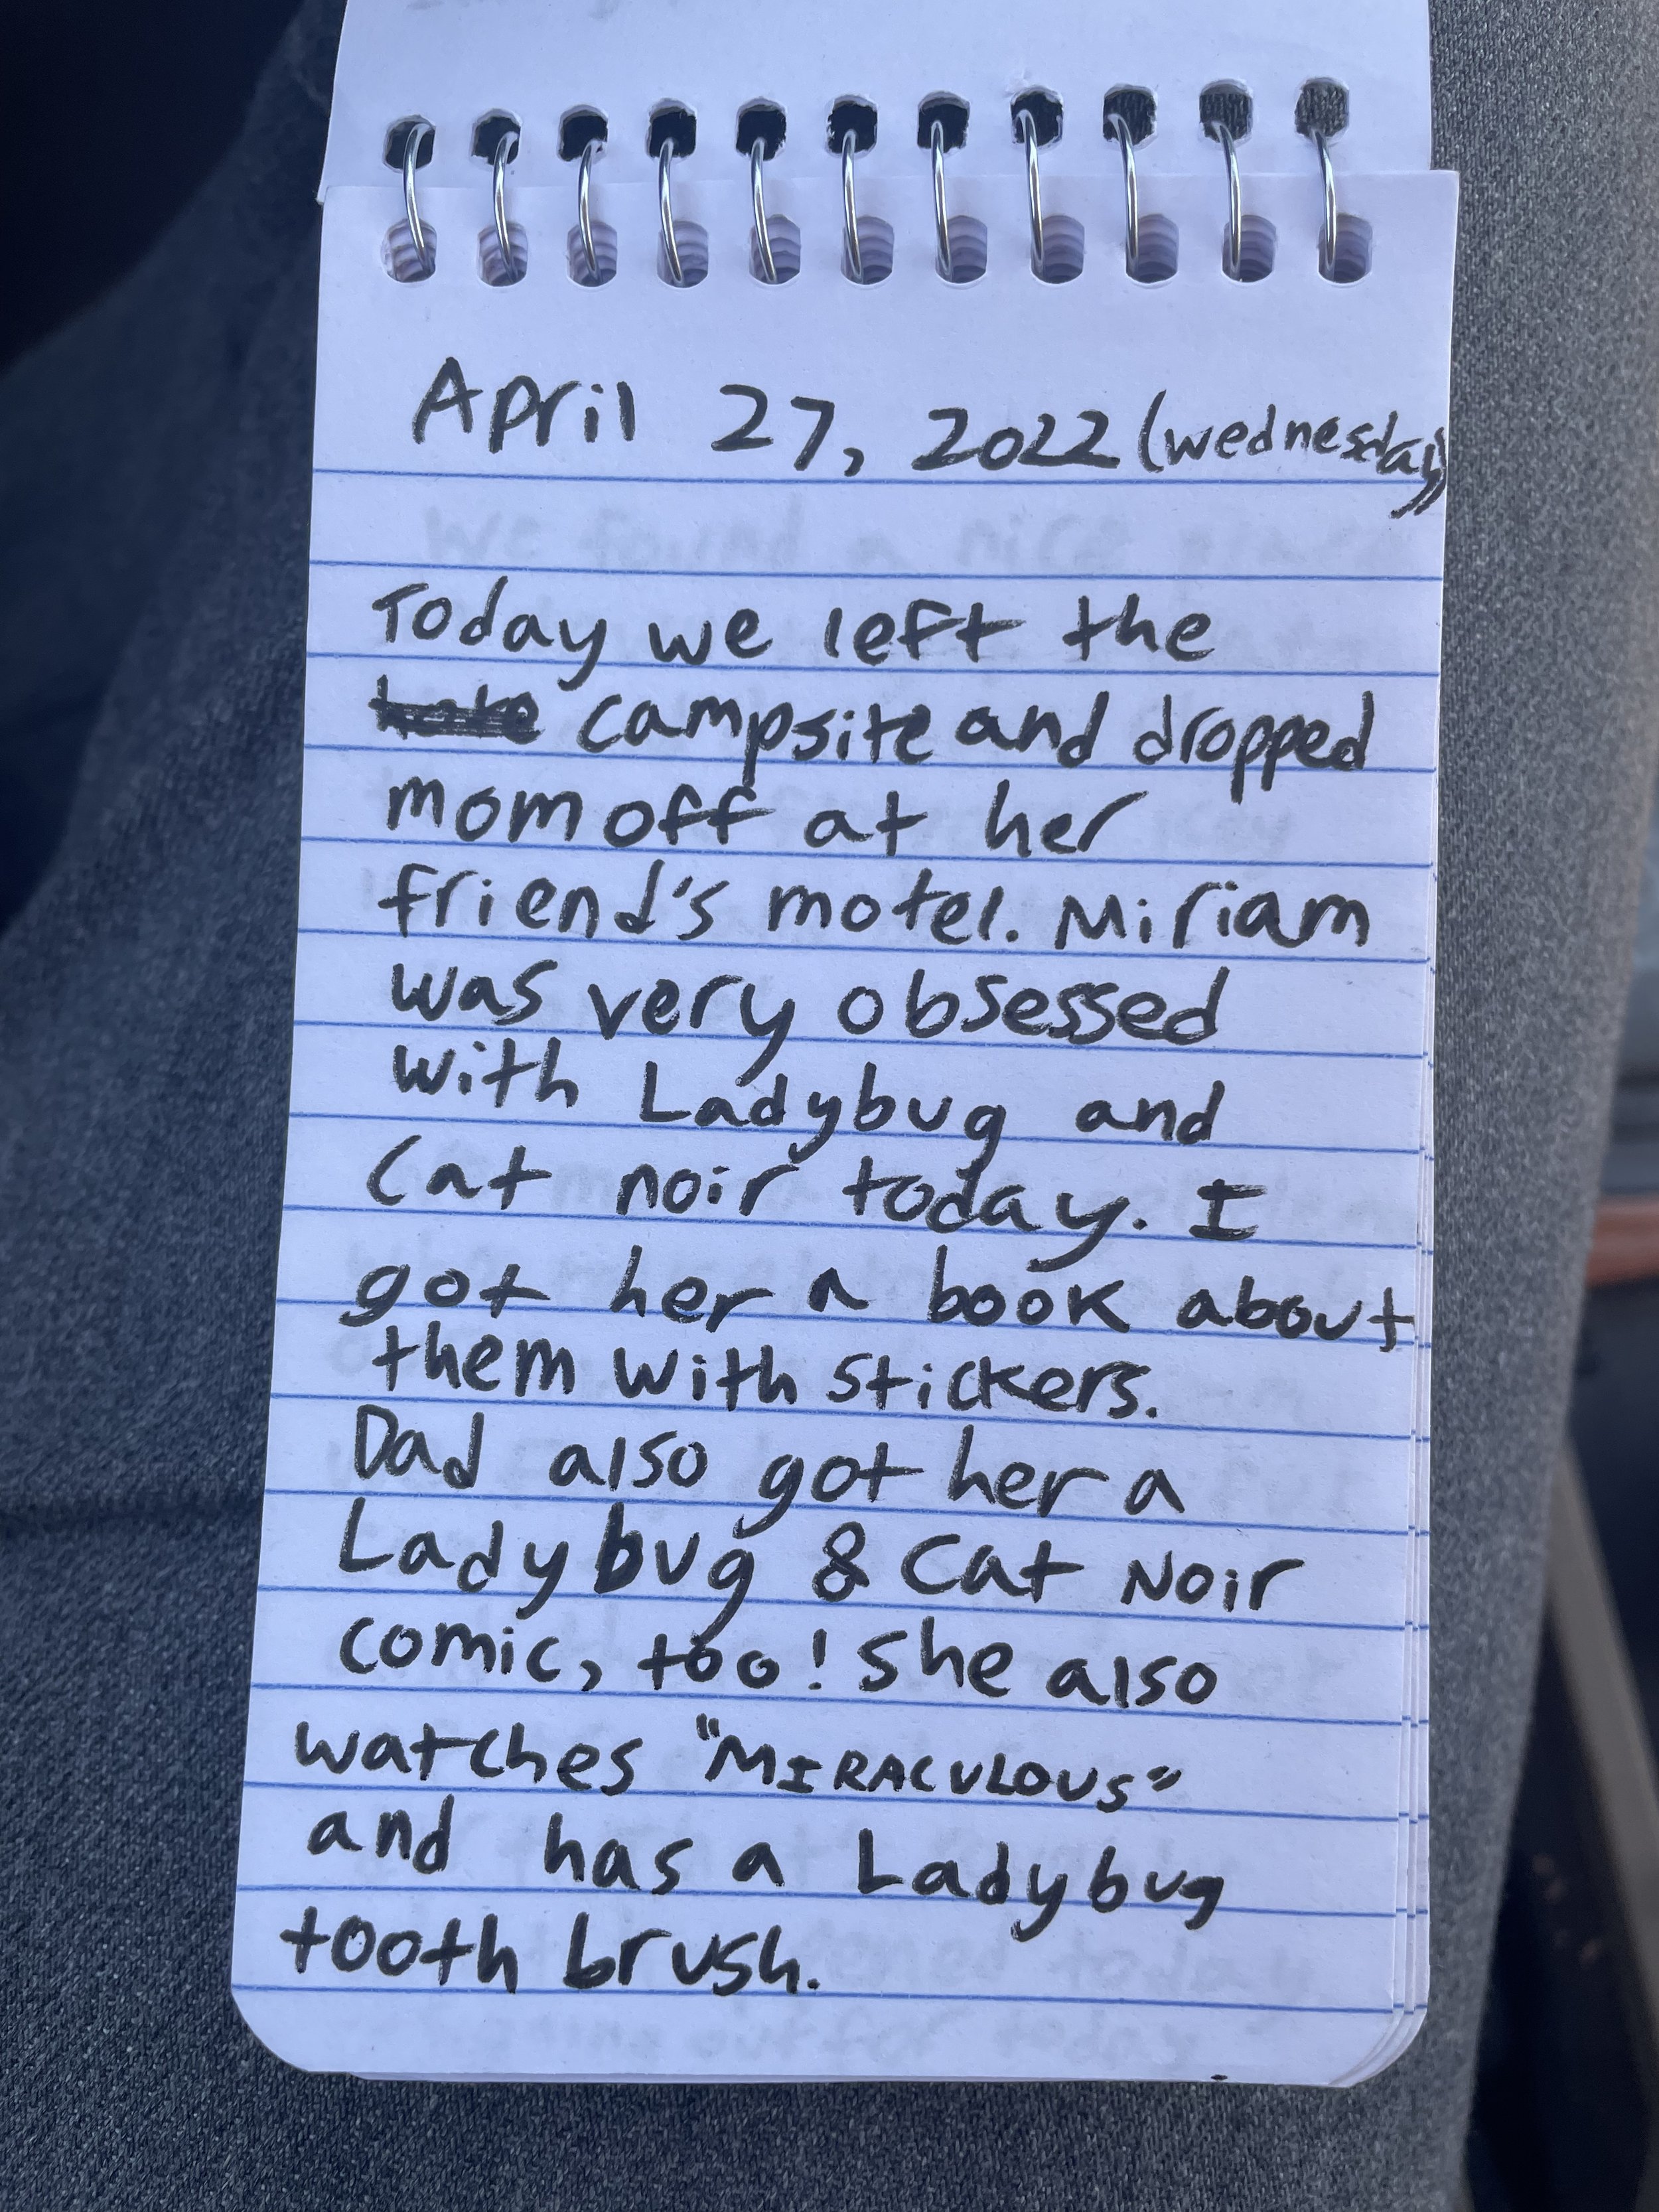 April 27, 2022 (wednesday)
Today we left the
campsite and dropped
mom off at her
friend's motel. Miriam
was very obsessed
with Ladybug and
Cat noir today. I
got her a book about
them with stickers.
Dad also got her a
Ladybug & Cat Noir
comic, too! She also
watches "MIRACULOUS"
and has a Ladybug
tooth brush.